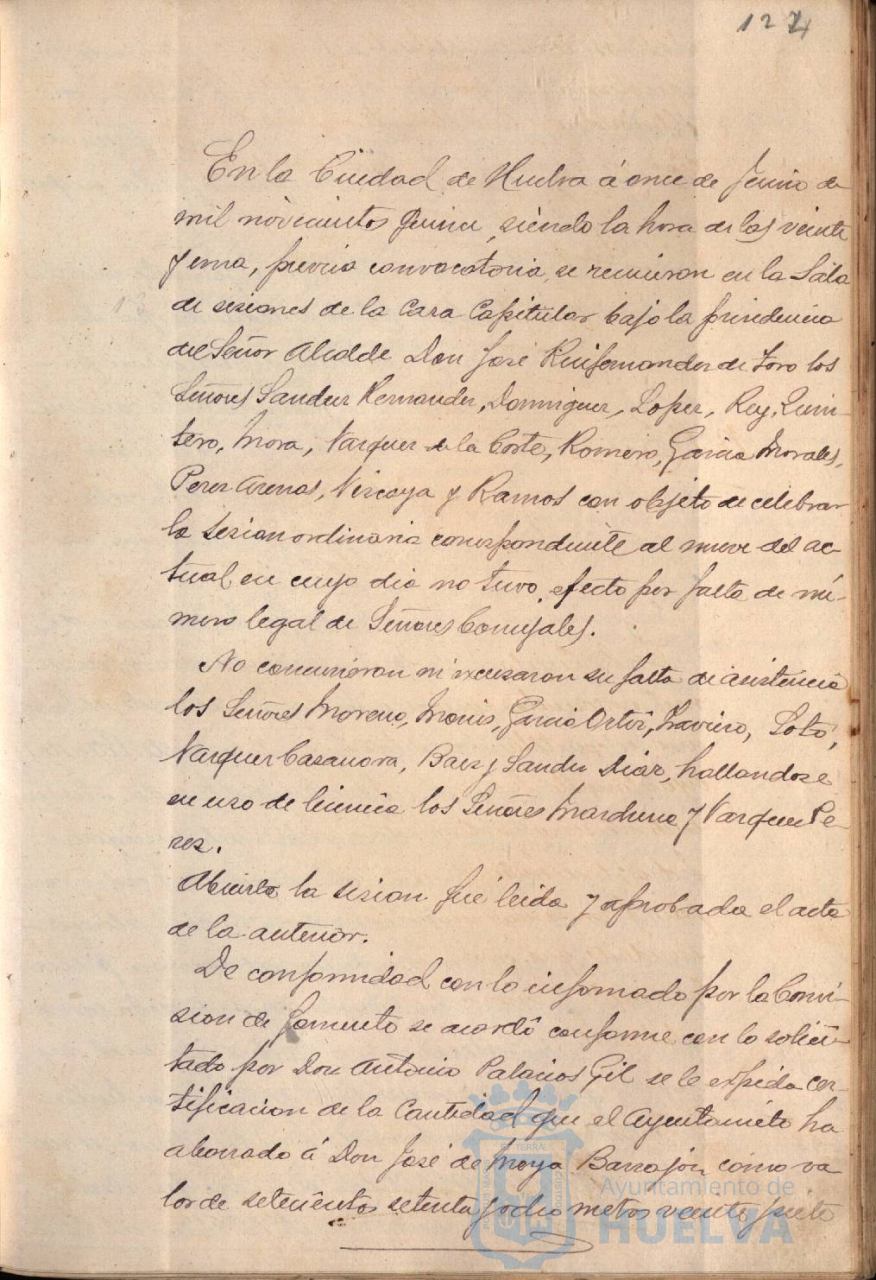 124
En la Ciudad de Huelva á once de Junio de
mil novecientos quince, siendo la hora de las veinte
y una, previa convocatoria, se reunieron en la Sala
de sesiones de la Casa Capitular bajo la presidencia
del Señor Alcalde Don José Ruifernandez de Toro los
Señores Sanchez Hernandez, Dominguez, Lopez, Rey, Quin-
tero, Mora, Vazquez de la Corte, Romero, Garcia Morales,
Perez Arenas, Vizcaya y Ramos con objeto de celebrar
la sesion ordinaria correspondiente al nueve del ac-
tual en cuyo dia no tuvo efecto por falta de nú-
mero legal de Señores Concejales.
No concurrieron ni excusaron su falta de asistencia
los Señores Moreno, Monis, Garcia Ortiz, Soto,
Vazquez Casanova, Baez y Sanchez Diaz, hallandose
en uso de licencia los Señores Marchena y Vazquez Pe-
rez.
Abierta la sesion fué leida y aprobada el acta
de la anterior.
De conformidad con lo informado por la Comi-
sion de Fomento se acordó conforme con lo solici-
tado por Don Antonio Palacios Gil se le expida cer-
tificacion de la cantidad que el Ayuntamiento ha
abonado á Don José de Moya Barrajón como va
lor de setecientos setenta y ocho metros veinte y siete
Ayuntamiento de
HUELVA